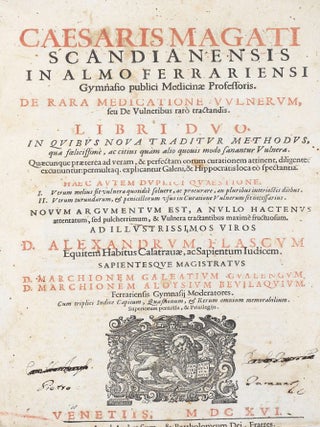 CAESARIS MAGATI
SCANDIANENSIS
IN ALMO FERRARIENSI
Gymnasio publici Medicinæ Professoris.
DE RARA MEDICATIONE VVLNERVM,
seu De Vulneribus rarò tractandis.
LIBRI DVO.
IN QVIBVS NOVA TRADITVR METHODVS,
qua felicissimè, ac citius quam alio quouis modo sanantur Vulnera.
Quæcunque præterea ad veram, & perfectam eorum curationem attinent, diligenter
excutiuntur: permultaq. explicantur Galeni, & Hippocratis loca eo spectantia.
HAEC AVTEM DVPLICI QVAESTIONE.
I. Vtrum melius sit vulnera quotidie soluere, ac procurare, an pluribus interiectis diebus.
II. Vtrum turundarum, & penicillorum vsus in Curatione Vulnerum sit necessarius.
NOVVM ARGVMENTVM EST, A NVLLO HACTENVS
attentatum, sed pulcherrimum, & Vulnera tractantibus maximè fructuosum.
AD ILLVSTRISSIMOS VIROS
D. ALEXANDRVM FLASCVM
Equitem Habitus Calatrauæ, ac Sapientum Iudicem.
SAPIENTESQVE MAGISTRATVS
D. MARCHIONEM GALEATIVM GVALENGVM,
D. MARCHIONEM ALOYSIVM BEVILAQVIVM,
Ferrariensis Gymnasij Moderatores.
Cum triplici Indice Capitum, Quæstionum, & Rerum omnium memorabilium.
Superiorum permissu, & Priuilegijs.
VENETIIS, M DC XVI.
& Bartholomæum Dei, Fratres.